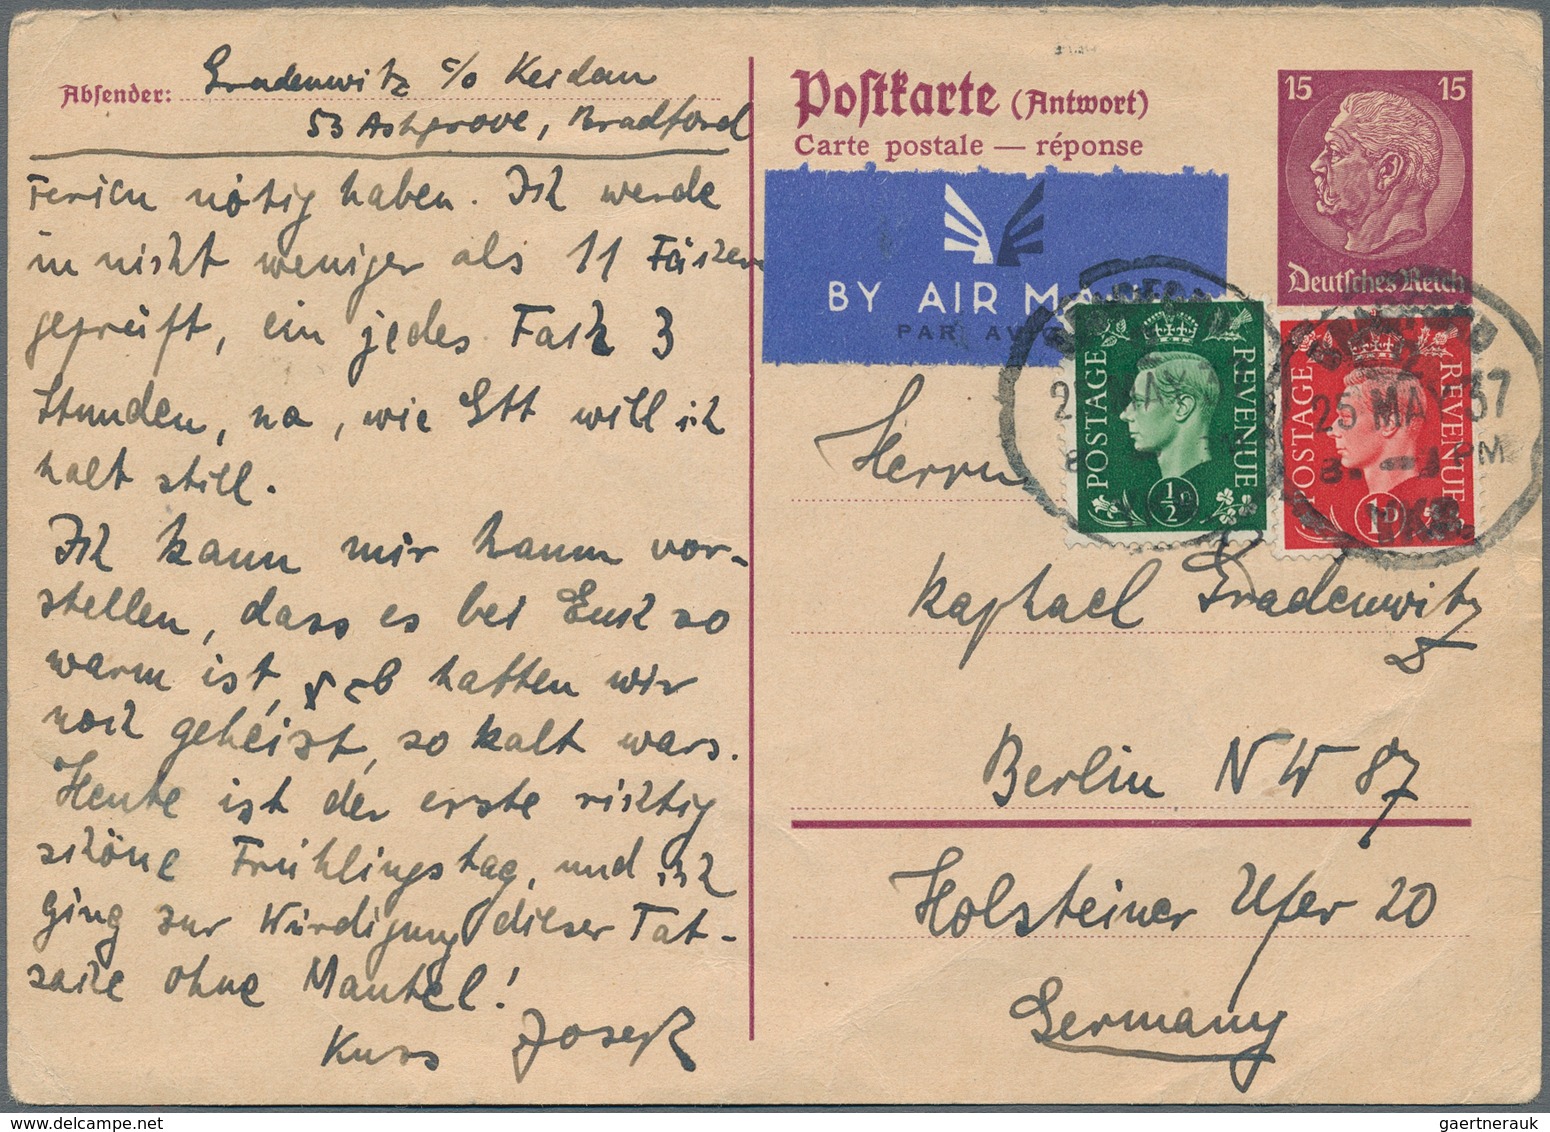 Absender: Gradenwitz c/o Keidan
53 Ashgrove, Bradford
Ferien nötig haben. Ich werde
in nicht weniger als 11 Fächern
geprüft, ein jedes Fach 3
Stunden, na, wie Gtt will ich
halt still.
Ich kann mir kaum vor-
stellen, dass es bei Euch so
warm ist, hatten wir
noch geheizt, so kalt wars.
Heute ist der erste richtig
schöne Frühlingstag, und ich
ging zur Würdigung dieser Tat-
sache ohne Mantel!
Kuss Josef
Postkarte (Antwort)
Carte postale — réponse
15 15
Deutsches Reich
BY AIR MA
PAR AV
POSTAGE REVENUE
1/2
POSTAGE REVENUE
1D
BRADFORD
25 MAY 37
PM
YKS.
Herrn
Raphael Gradenwitz
Berlin NW 87
Holsteiner Ufer 20
Germany
gaertnerauk